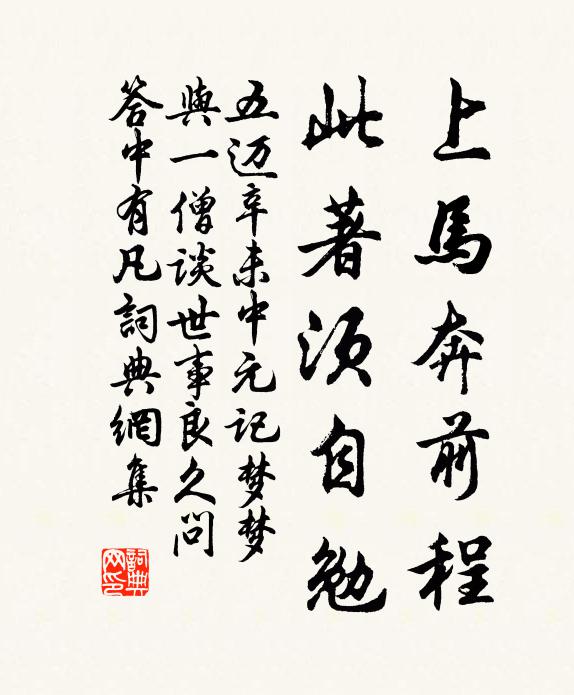 上馬奔前程
此著須自勉
五迈辛未中元记梦梦
與一僧谈世事良久问
答中有凡詞典網集
詞典網印